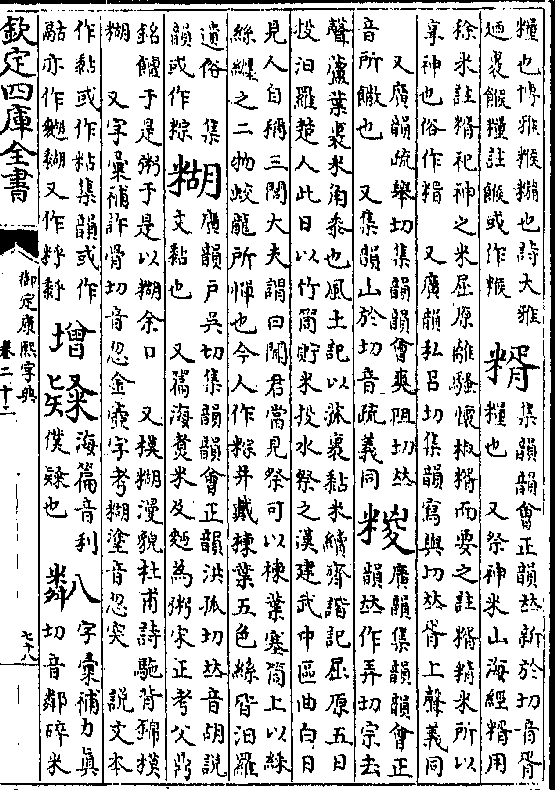 糧也博雅糇糒也詩大雅
廼裹餱糧註餱或作糇
糈
集韻韻會正韻𠀤新於切音胥
糧也 又祭神米山海經糈用
稌米註糈祀神之米屈原離騷懷椒糈而要之註糈精米所以
享神也俗作糈 又廣韻私呂切集韻寫與切𠀤胥上聲義同
又廣韻疏舉切集韻韻會爽阻切𠀤
音所饊也 又集韻山於切音疏義同
糉
廣韻集韻韻會正
韻𠀤作弄切宗去
聲蘆葉裹米角黍也風土記以菰裹黏米續齊諧記屈原五日
投汨羅楚人此日以竹筒貯米投水祭之漢建武中區曲白日
見人自稱三閭大夫謂曰聞君當見祭可以楝葉塞筒上以絲
絲纏之二物蛟龍所憚也今人作糉并藏楝葉五色絲皆汨羅
遺俗 集
韻或作粽
糊
廣韻戸吳切集韻韻會正韻洪孤切𠀤音胡說
文黏也 又篇海煑米及麪為粥宋正考父鼎
銘饘于是粥于是以糊余口 又模糊漫貌杜甫詩馳背錦模
糊 又字彙補詐骨切音忽金壺字考糊塗音忽突 說文本
作黏或作粘集韻或作
𩱻亦作麴䊀又作䊀䴺
增
海篇音利
僕𥻦也
八
粦
字彙補力眞
切音鄰碎米
欽定四庫全書
御定康熙字典
卷二十二
七十八